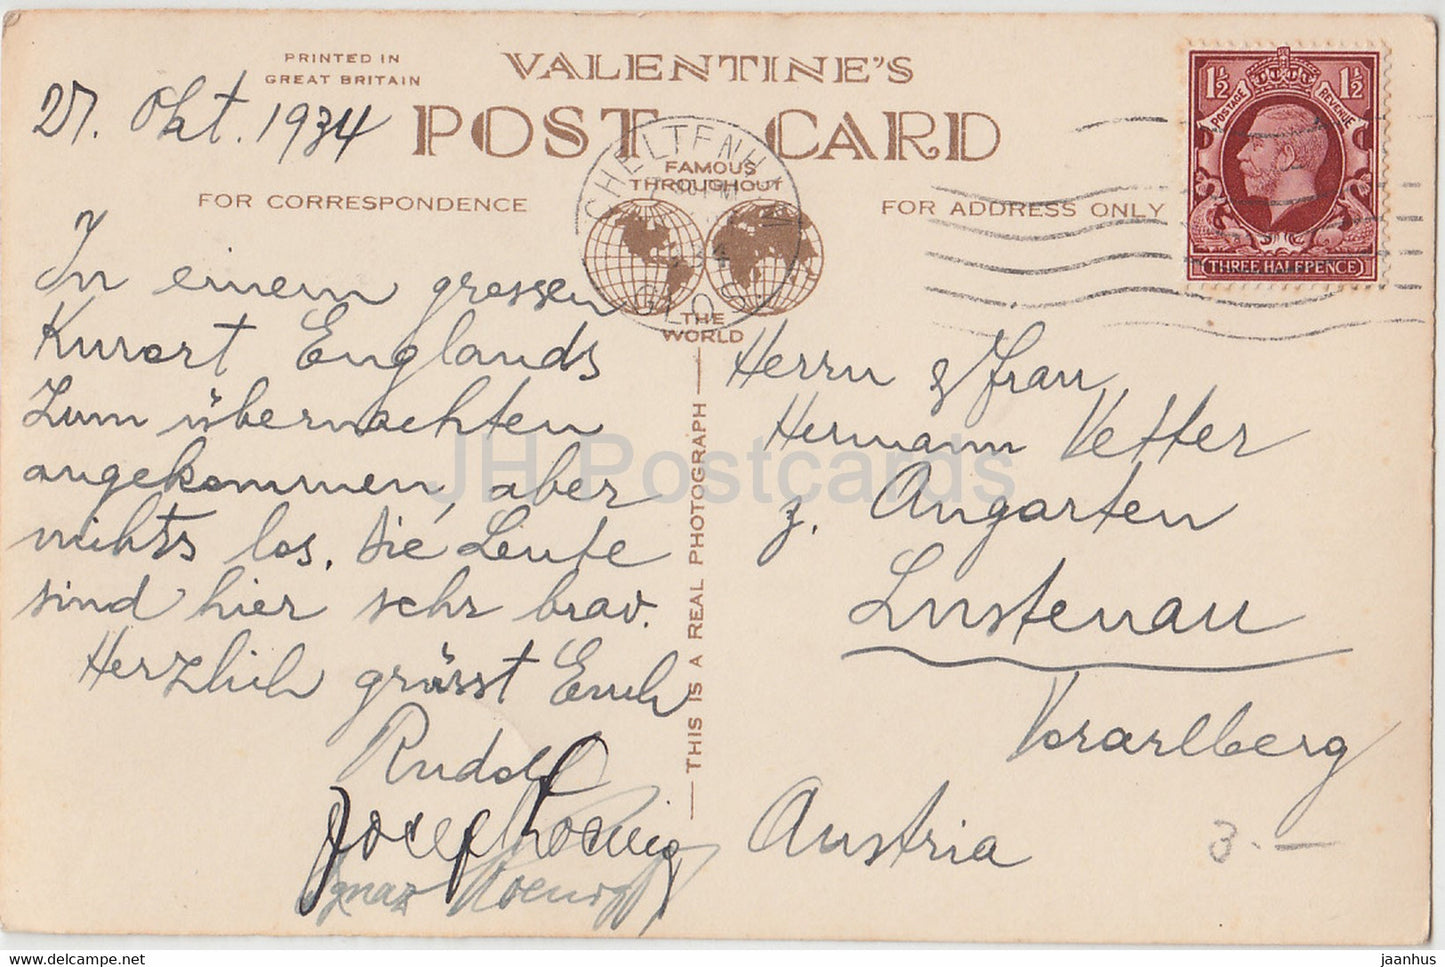 PRINTED IN
GREAT BRITAIN
VALENTINE'S
POST CARD
FAMOUS
THROUGHOUT
THE
WORLD
CHELTENHAM
GLOS
FOR CORRESPONDENCE
FOR ADDRESS ONLY
1½ 1½
POSTAGE REVENUE
THREE HALFPENCE
27. Okt. 1934
In einem grossen
Kurort Englands
zum übernachten
angekommen, aber
nichts los. Die Leute
sind hier sehr brav.
Herzlich grüsst Euch
Rudolf
Josef Koenig
Ignaz Koenig
THIS IS A REAL PHOTOGRAPH
Herrn & Frau
Hermann Vetter
z. Augarten
Lustenau
Vorarlberg
Austria
3.—
JH Postcards
www.delcampe.net
jaanhus